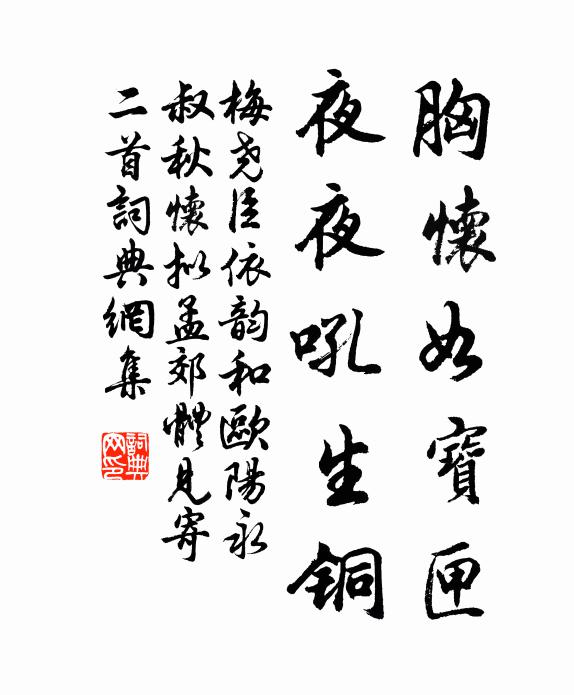 胸懷如寶匣
夜夜吼生铜
梅尧臣依韵和歐陽永
叔秋懷拟孟郊體見寄
二首詞典網集
詞典网印